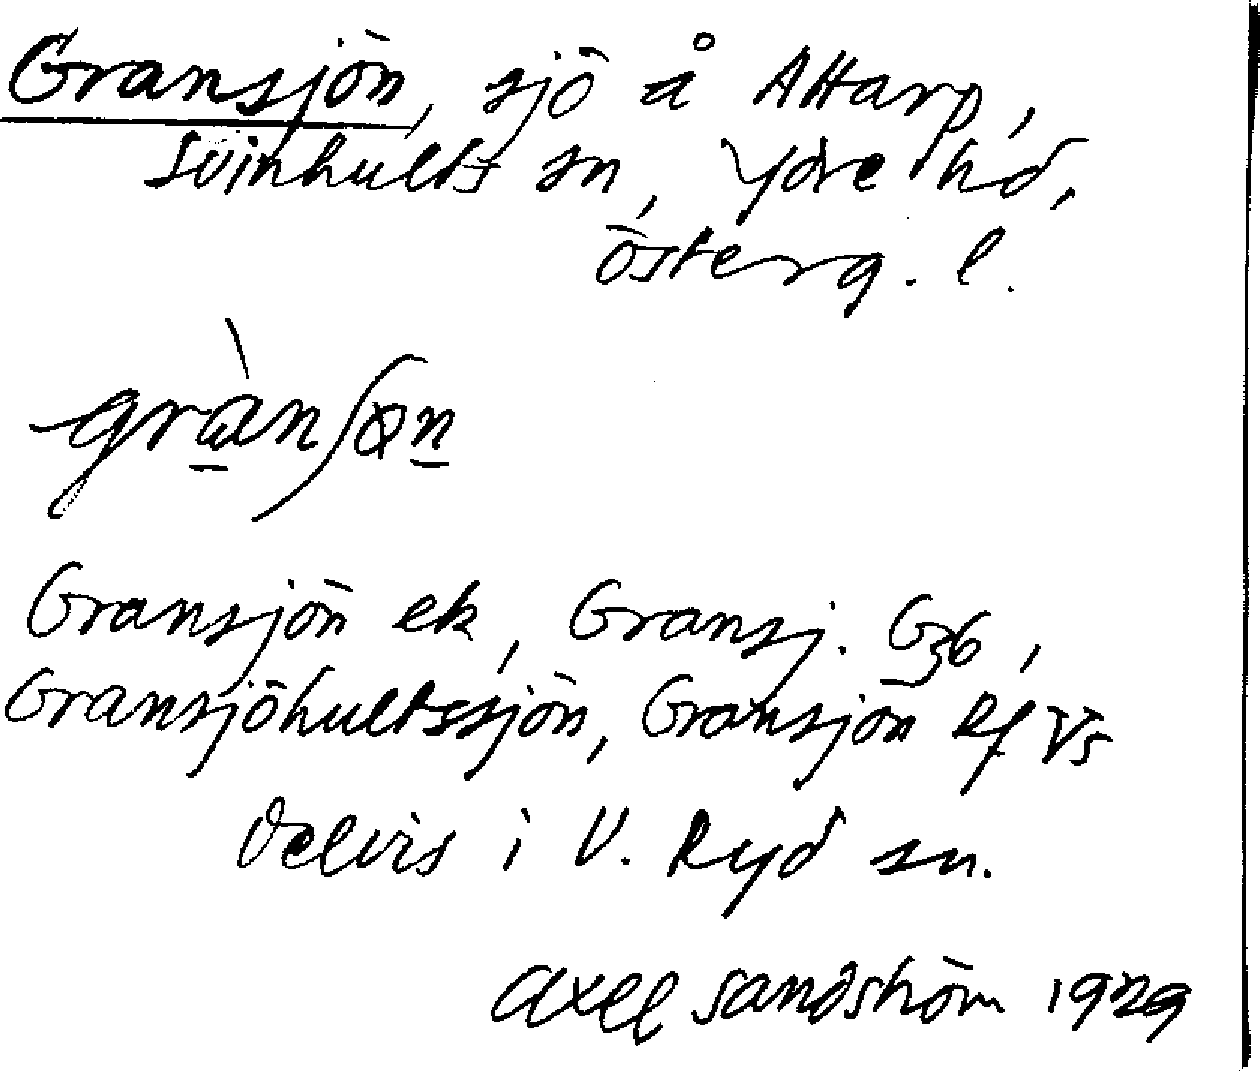 Gransjön, sjö å Attarp,
Svinhults sn, Ydre hd,
Österg. l.
grànʃøn
Gransjön ek, Gransj. G36,
Gransjöhultssjön, Gransjön Rf Vs
Delvis i V. Ryd sn.
Axel Sandström 1929